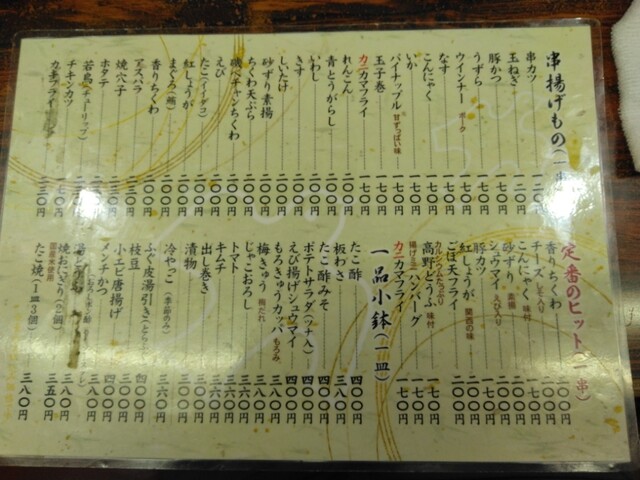 串揚げもの(一串)
串カツ
玉ねぎ 一二〇円
豚かつ 二〇〇円
うずら 一七〇円
ウインナー ポーク 一七〇円
なす 一七〇円
こんにゃく 一七〇円
いか 一七〇円
パイナップル 甘ずっぱい味 一七〇円
玉子巻 一七〇円
カニカマフライ 一七〇円
れんこん 二〇〇円
青とうがらし 二〇〇円
いわし 二〇〇円
きす 二〇〇円
しいたけ 二〇〇円
砂ずり素揚 二〇〇円
ちくわ天ぷら 二〇〇円
磯べチャンちくわ 二〇〇円
えび 二〇〇円
たこ(イイダコ) 二〇〇円
紅しょうが 二〇〇円
まぐろ(鮪) 二〇〇円
香りちくわ 二〇〇円
アスパラ 二〇〇円
焼穴子
ホタテ
若鳥(チューリップ)
チキンカツ 一七〇円
カキフライ 二三〇円
定番のヒット(一串)
香りちくわ 二〇〇円
チーズ しそ入り 二〇〇円
こんにゃく 味付 一七〇円
砂ずり 素揚 二〇〇円
シュウマイ えび入り
豚カツ 二〇〇円
紅しょうが 関西の味 二〇〇円
ごぼ天フライ 二〇〇円
カルシウムたっぷり 高野どうふ 味付 一七〇円
揚げミニハンバーグ 一七〇円
カニカマフライ 一七〇円
一品小鉢(一皿)
たこ酢 四〇〇円
板わさ 三八〇円
たこ酢みそ 四〇〇円
ポテトサラダ(ツナ入) 四〇〇円
えび揚げシュウマイ 四〇〇円
もろきゅうカッパ もろみ 三八〇円
梅きゅう 梅だれ 三八〇円
じゃこおろし 三六〇円
トマト 三六〇円
キムチ 三六〇円
出し巻き
漬物 三〇〇円
冷やっこ(季節のみ) 三六〇円
ふぐ皮湯引き
枝豆
小エビ唐揚げ 四〇〇円
メンチカツ 四〇〇円
焼おにぎり(2個) 三八〇円
国産米使用
たこ焼(一皿3個) 三八〇円